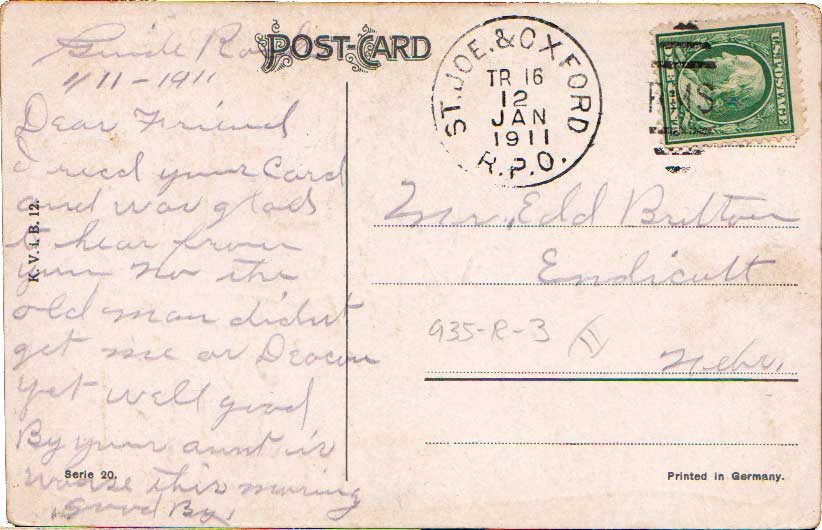 Guide Rock
1/11-1911
Dear Friend
I recd your Card
and was glad
to hear from
you No the
old man didnt
get me or Deacon
yet well good
By your aunt is
worse this morning
good By,
K. V. i. B. 12.
Serie 20.
POST-CARD
ST. JOE. & OXFORD
TR 16
12
JAN
1911
R.P.O.
RMS
U.S. POSTAGE
Mr. Edd Britton
Endicott
Nebr.
935-R-3
Printed in Germany.